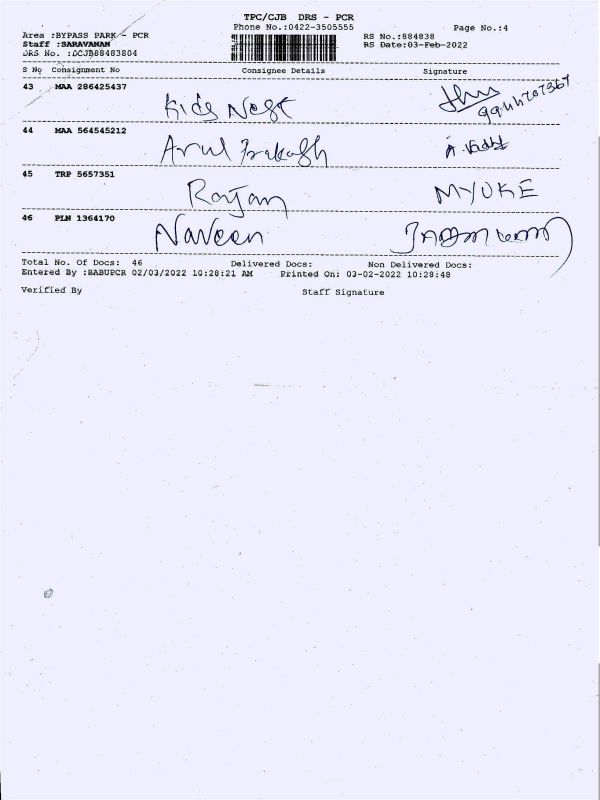 TPC/CJB DRS - PCR
Phone No.:0422-3505555
Page No.:4
Area :BYPASS PARK - PCR
RS No.:884838
Staff :SARAVANAN
RS Date:03-Feb-2022
DRS No. :DCJB88483804
S No Consignment No Consignee Details Signature
43 MAA 286425437 Kids Nest
44 MAA 564545212 Arul Prakash
45 TRP 5657351 Rajan MYUKE
46 PLN 1364170 Naveen
Total No. Of Docs: 46 Delivered Docs: Non Delivered Docs:
Entered By :BABUPCR 02/03/2022 10:28:21 AM Printed On: 03-02-2022 10:28:48
Verified By Staff Signature